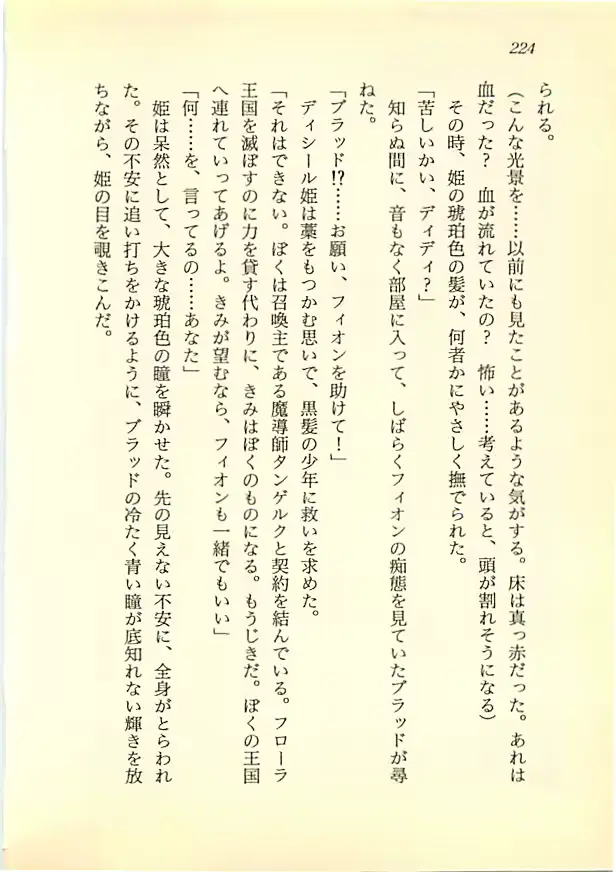 224
られる。
（こんな光景を……以前にも見たことがあるような気がする。床は真っ赤だった。あれは
血だった？　血が流れていたの？　怖い……考えていると、頭が割れそうになる）
その時、姫の琥珀色の髪が、何者かにやさしく撫でられた。
「苦しいかい、ディディ？」
知らぬ間に、音もなく部屋に入って、しばらくフィオンの痴態を見ていたブラッドが尋
ねた。
「ブラッド!?……お願い、フィオンを助けて！」
ディシール姫は藁をもつかむ思いで、黒髪の少年に救いを求めた。
「それはできない。ぼくは召喚主である魔導師タンゲルクと契約を結んでいる。フローラ
王国を滅ぼすのに力を貸す代わりに、きみはぼくのものになる。もうじきだ。ぼくの王国
へ連れていってあげるよ。きみが望むなら、フィオンも一緒でもいい」
「何……を、言ってるの……あなた」
姫は呆然として、大きな琥珀色の瞳を瞬かせた。先の見えない不安に、全身がとらわれ
た。その不安に追い打ちをかけるように、ブラッドの冷たく青い瞳が底知れない輝きを放
ちながら、姫の目を覗きこんだ。